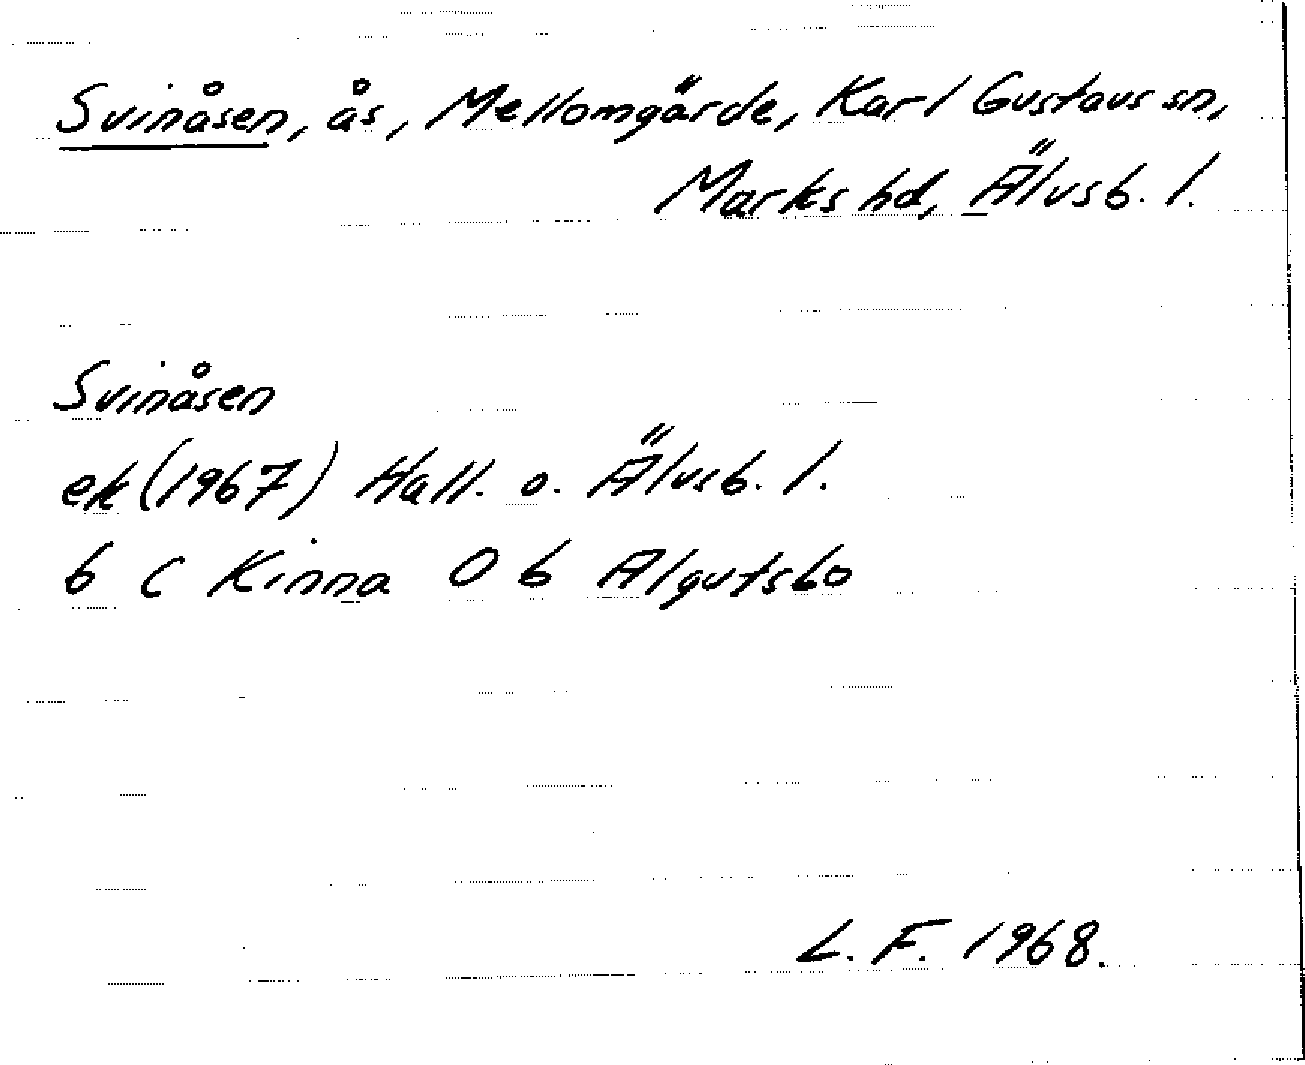 Svinåsen, ås, Mellomgärde, Karl Gustavs sn,
Marks hd, Älvsb. l.
Svinåsen
ek (1967) Hall. o. Älvsb. l.
6 C Kinna 0 b Älgutsbo
L. F. 1968.